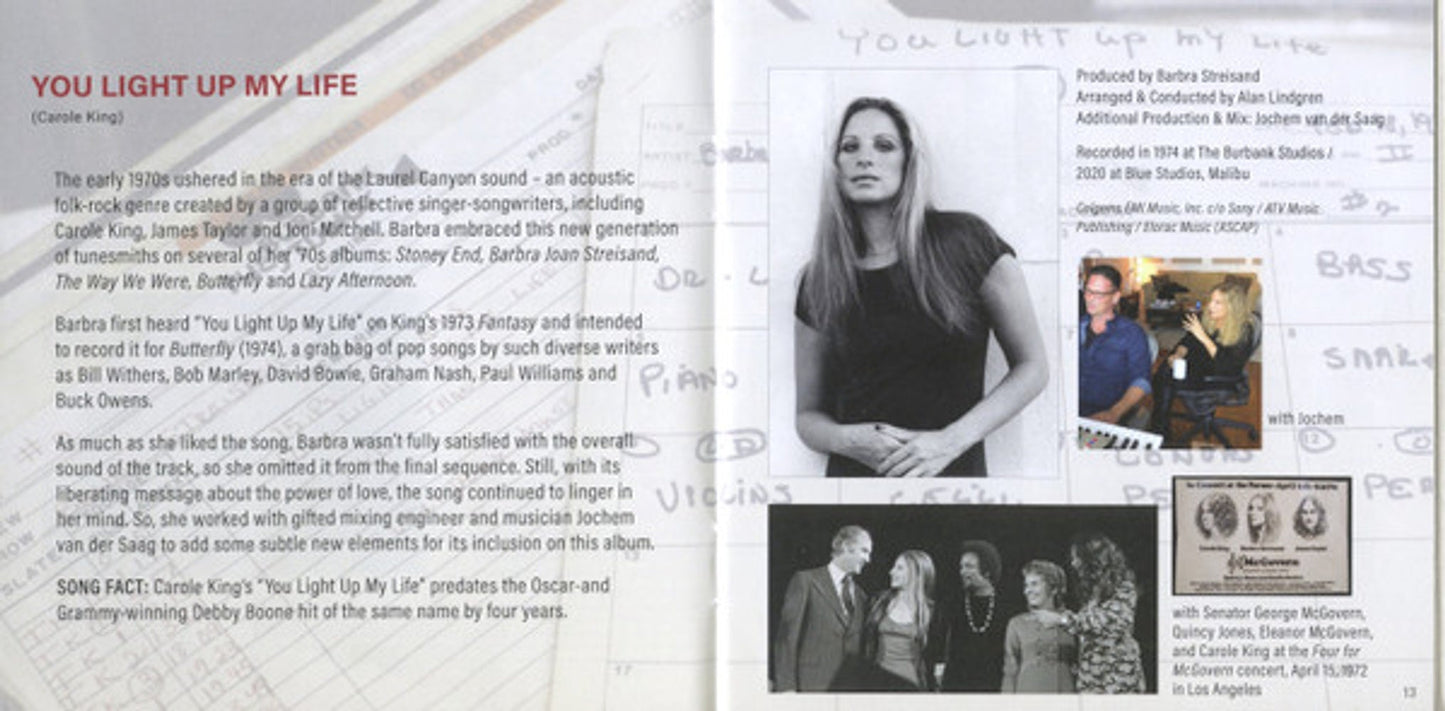 YOU LIGHT UP MY LIFE
(Carole King)
The early 1970s ushered in the era of the Laurel Canyon sound – an acoustic
folk-rock genre created by a group of reflective singer-songwriters, including
Carole King, James Taylor and Joni Mitchell. Barbra embraced this new generation
of tunesmiths on several of her '70s albums: Stoney End, Barbra Joan Streisand,
The Way We Were, Butterfly and Lazy Afternoon.
Barbra first heard "You Light Up My Life" on King's 1973 Fantasy and intended
to record it for Butterfly (1974), a grab bag of pop songs by such diverse writers
as Bill Withers, Bob Marley, David Bowie, Graham Nash, Paul Williams and
Buck Owens.
As much as she liked the song, Barbra wasn't fully satisfied with the overall
sound of the track, so she omitted it from the final sequence. Still, with its
liberating message about the power of love, the song continued to linger in
her mind. So, she worked with gifted mixing engineer and musician Jochem
van der Saag to add some subtle new elements for its inclusion on this album.
SONG FACT: Carole King's "You Light Up My Life" predates the Oscar-and
Grammy-winning Debby Boone hit of the same name by four years.
YOU LIGHT UP MY LIFE
Produced by Barbra Streisand
Arranged & Conducted by Alan Lindgren
Additional Production & Mix: Jochem van der Saag
Recorded in 1974 at The Burbank Studios /
2020 at Blue Studios, Malibu
Colgems EMI Music, Inc. c/o Sony / ATV Music
Publishing / Elorac Music (ASCAP)
BASS
PIANO
VIOLINS
with Jochem
McGovern
with Senator George McGovern,
Quincy Jones, Eleanor McGovern,
and Carole King at the Four for
McGovern concert, April 15, 1972
in Los Angeles
13